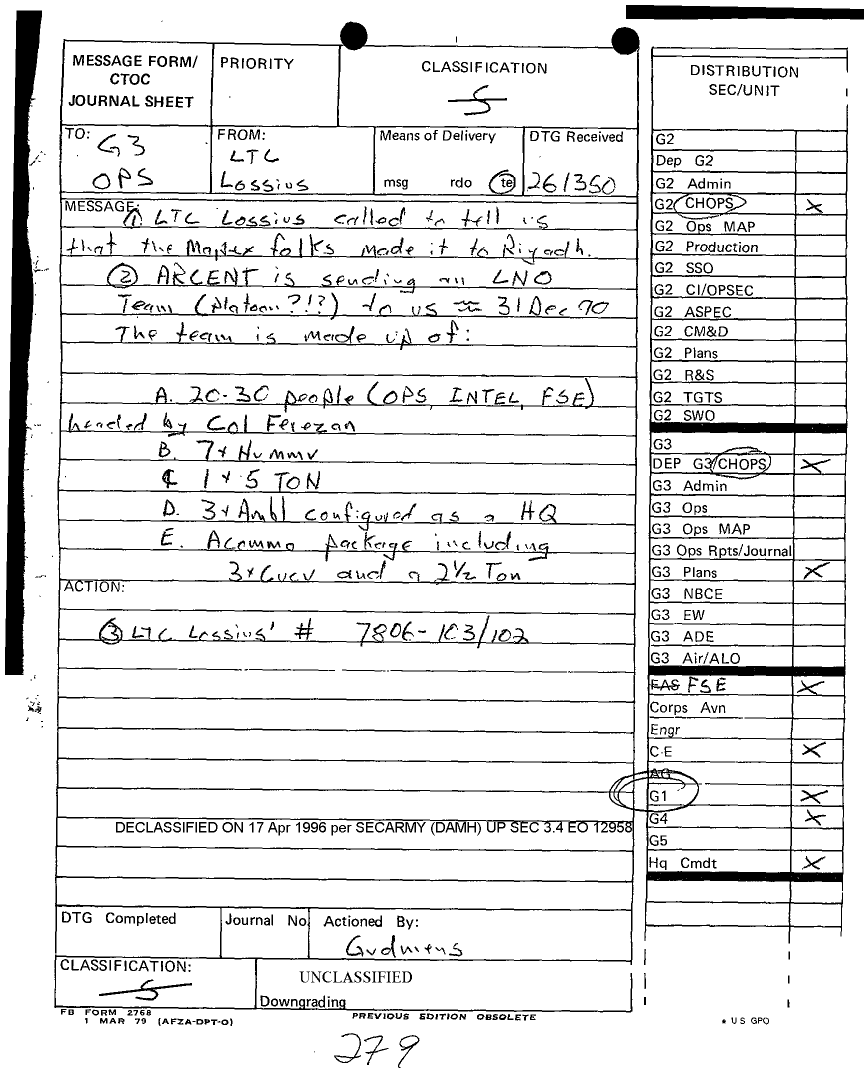 MESSAGE FORM/
CTOC
JOURNAL SHEET
PRIORITY
CLASSIFICATION
S
TO: G3
OPS
FROM:
LTC
Lossius
Means of Delivery
msg rdo te
DTG Received
261350
MESSAGE:
① LTC Lossius called to tell us
that the Maptex folks made it to Riyadh.
② ARCENT is sending an LNO
Team (Platoon?!?) to us ≈ 31 Dec 90
The team is made up of:
A. 20-30 people (OPS, INTEL, FSE)
headed by Col Ferezan
B. 7x Hummv
C 1 x 5 TON
D. 3x Ambl configured as a HQ
E. Acommo package including
3x Cucv and a 2½ Ton
ACTION:
③ LTC Lossius' # 7806-103/102
DECLASSIFIED ON 17 Apr 1996 per SECARMY (DAMH) UP SEC 3.4 EO 12958
DTG Completed
Journal No
Actioned By:
Gudmens
CLASSIFICATION:
S
UNCLASSIFIED
Downgrading
FB FORM 2768
1 MAR 79 (AFZA-DPT-O)
PREVIOUS EDITION OBSOLETE
279
DISTRIBUTION
SEC/UNIT
G2
Dep G2
G2 Admin
G2 CHOPS X
G2 Ops MAP
G2 Production
G2 SSO
G2 CI/OPSEC
G2 ASPEC
G2 CM&D
G2 Plans
G2 R&S
G2 TGTS
G2 SWO
G3
DEP G3/CHOPS X
G3 Admin
G3 Ops
G3 Ops MAP
G3 Ops Rpts/Journal
G3 Plans X
G3 NBCE
G3 EW
G3 ADE
G3 Air/ALO
EAS FSE X
Corps Avn
Engr
C-E X
AG
G1 X
G4 X
G5
Hq Cmdt X
* US GPO